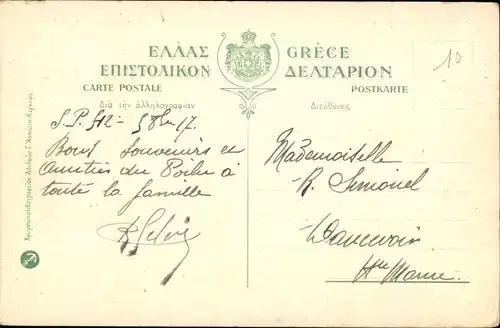 ΕΛΛΑΣ GRÈCE
ΕΠΙΣΤΟΛΙΚΟΝ ΔΕΛΤΑΡΙΟΝ
CARTE POSTALE POSTKARTE
Διὰ τὴν ἀλληλογραφίαν Διεύθυνσις
10
S.P. 512 - 5 8bre 17
Bons souvenirs et
amitiés du Poilu à
toute la famille
Mademoiselle
R. Simonel
Hte Marne